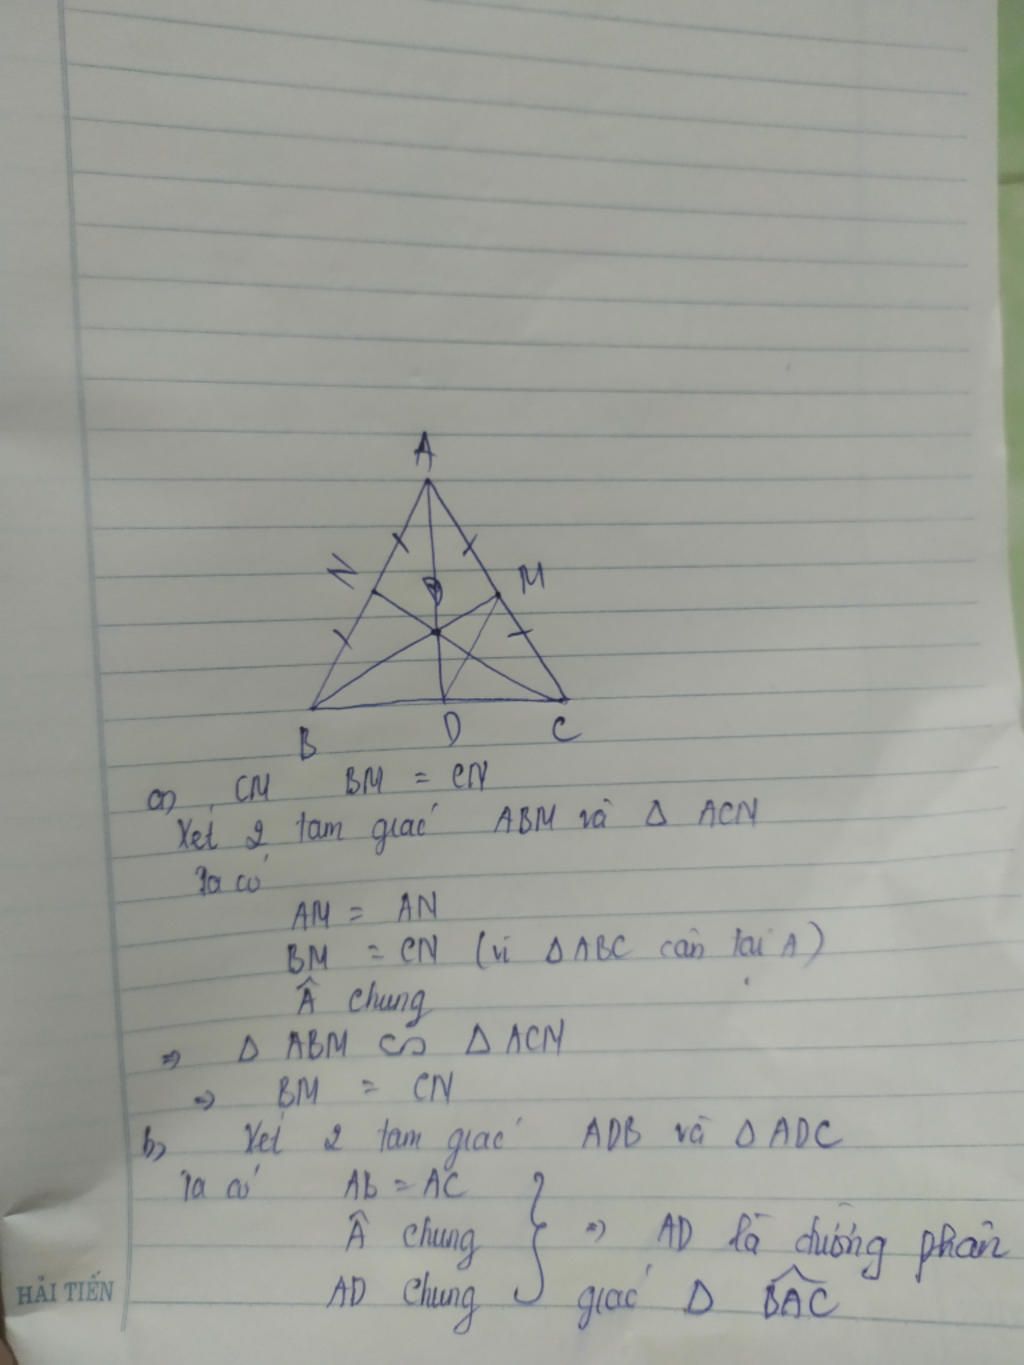 A
N
M
B
D
C
a, CM BM = CN
Xét 2 tam giác ABM và Δ ACN
Ta có
AM = AN
BM = CN (vì Δ ABC cân tại A)
Â chung
=> Δ ABM ∽ Δ ACN
=> BM = CN
b, Xét 2 tam giác ADB và Δ ADC
Ta có AB = AC
Â chung } => AD là đường phân
AD chung giác Δ BÂC
HẢI TIẾN